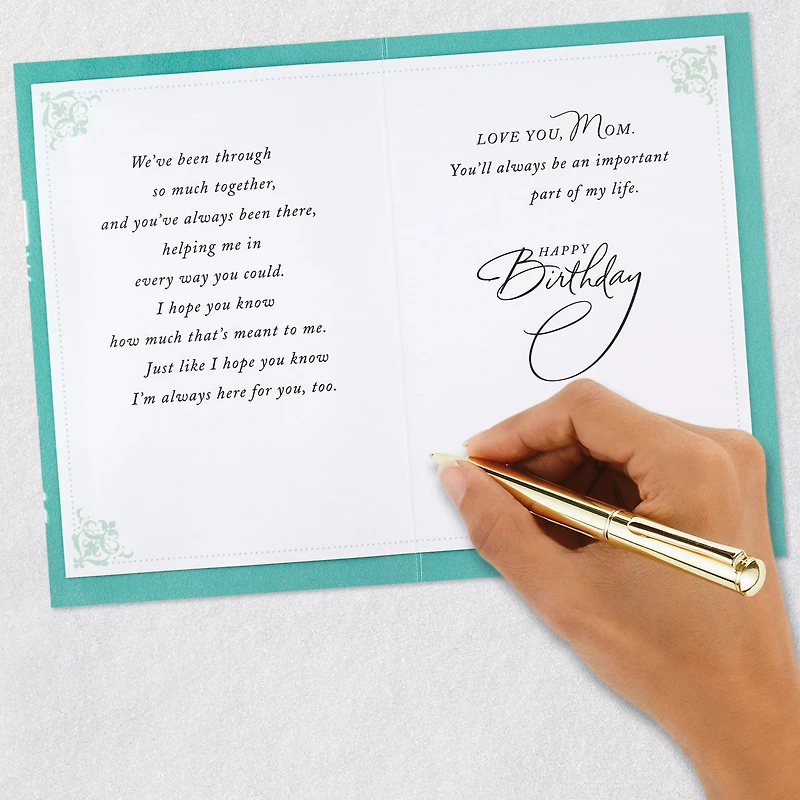 We've been through
so much together,
and you've always been there,
helping me in
every way you could.
I hope you know
how much that's meant to me.
Just like I hope you know
I'm always here for you, too.
LOVE YOU, MOM.
You'll always be an important
part of my life.
HAPPY
Birthday